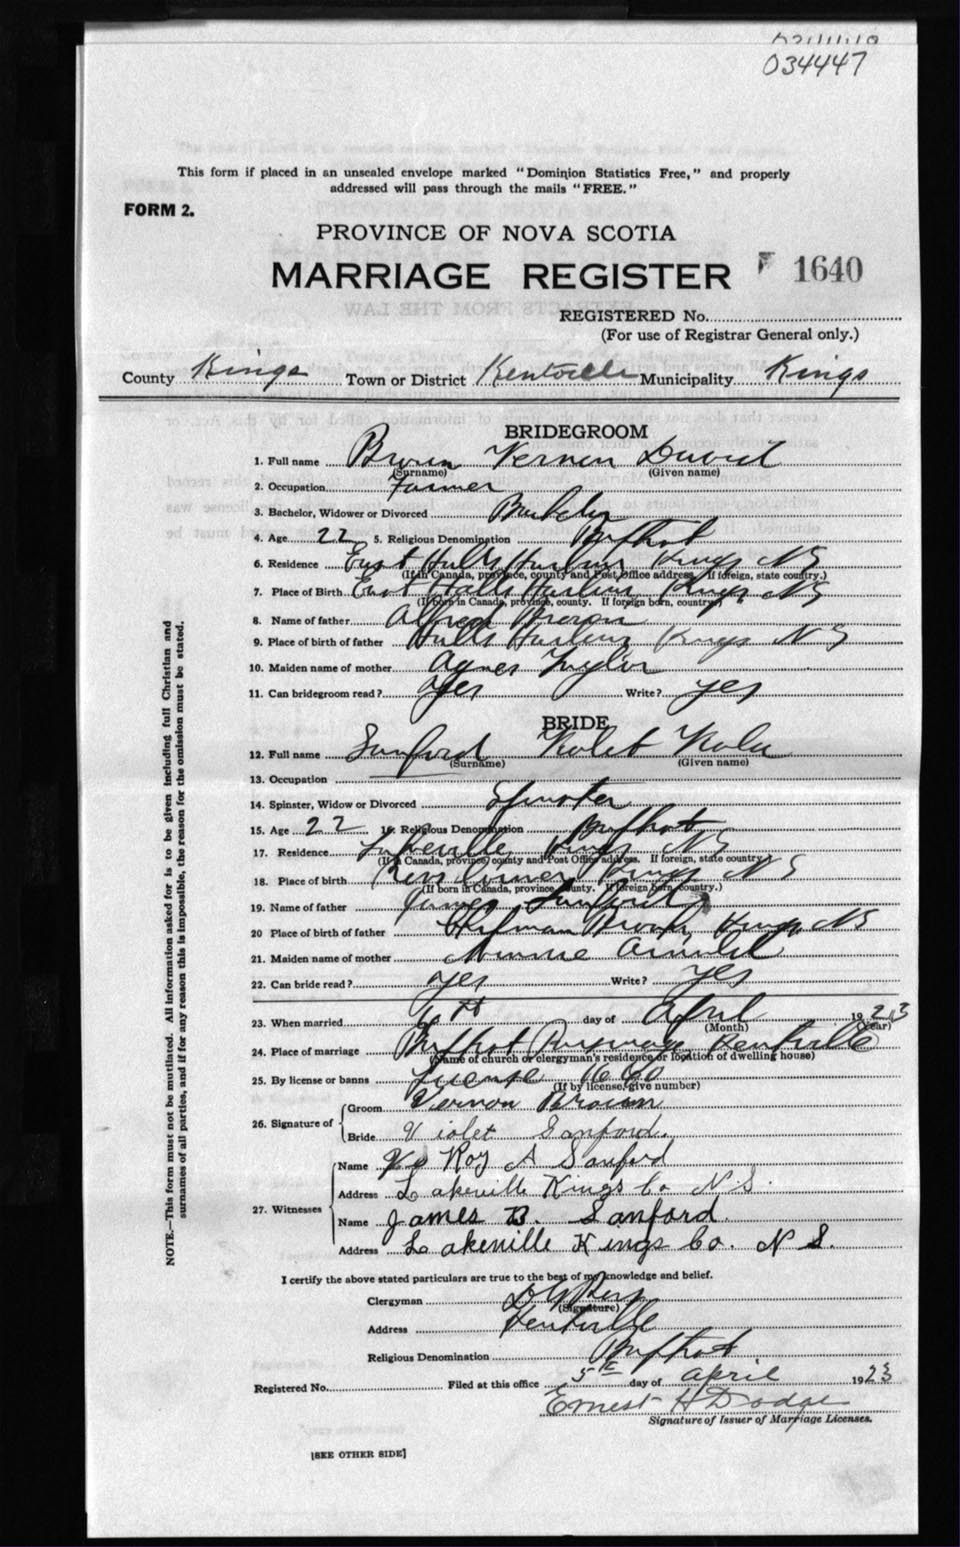 034447
This form if placed in an unsealed envelope marked "Dominion Statistics Free," and properly
addressed will pass through the mails "FREE."
FORM 2.
PROVINCE OF NOVA SCOTIA
MARRIAGE REGISTER 1640
REGISTERED No.
(For use of Registrar General only.)
County Kings Town or District Kentville Municipality Kings
BRIDEGROOM
1. Full name Brown Vernon David
(Surname) (Given name)
2. Occupation Farmer
3. Bachelor, Widower or Divorced Bachelor
4. Age 22 5. Religious Denomination Baptist
6. Residence East Halls Harbour Kings NS
(If in Canada, province, county and Post Office address. If foreign, state country.)
7. Place of Birth East Halls Harbour Kings NS
(If born in Canada, province, county. If foreign born, country.)
8. Name of father Alfred Brown
9. Place of birth of father Halls Harbour Kings NS
10. Maiden name of mother Agnes Taylor
11. Can bridegroom read? Yes Write? yes
BRIDE
12. Full name Sanford Violet Nola
(Surname) (Given name)
13. Occupation
14. Spinster, Widow or Divorced Spinster
15. Age 22 16. Religious Denomination Baptist
17. Residence Lakeville Kings NS
(If in Canada, province, county and Post Office address. If foreign, state country.)
18. Place of birth Corner Kings NS
(If born in Canada, province, county. If foreign born, country.)
19. Name of father James Sanford
20 Place of birth of father Brook, Kings, NS
21. Maiden name of mother Minnie Arnold
22. Can bride read? yes Write? yes
23. When married th day of April 1923
(Month) (Year)
24. Place of marriage Baptist Parsonage Kentville
(Name of church or clergyman's residence or location of dwelling house)
25. By license or banns License 1660
(If by license, give number)
26. Signature of Groom Vernon Brown
Bride Violet Sanford.
27. Witnesses Name Roy A Sanford
Address Lakeville Kings Co N.S.
Name James B. Sanford.
Address Lakeville Kings Co. N S.
I certify the above stated particulars are true to the best of my knowledge and belief.
Clergyman
(Signature)
Address Kentville
Religious Denomination Baptist
Registered No. Filed at this office 5th day of April 1923
Ernest H Dodge
Signature of Issuer of Marriage Licenses.
[SEE OTHER SIDE]
NOTE.—This form must not be mutilated. All information asked for is to be given including full Christian and
surnames of all parties, and if for any reason this is impossible, the reason for the omission must be stated.